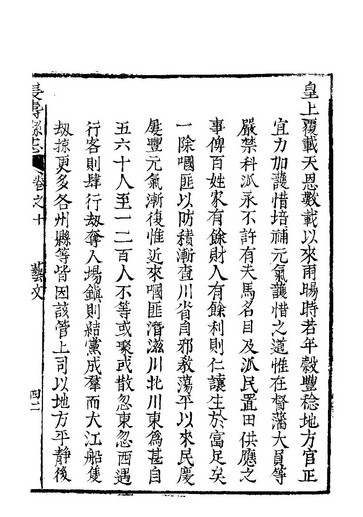 皇上覆載天恩數載以來雨暘時若年穀豐稔地方官正
宜力加護惜培補元氣護惜之道惟在督藩大員等
嚴禁科派永不許有夫馬名目及派民置田供應之
事俾百姓家有餘財人有餘利則仁讓生於富足矣
一除嘓匪以防積漸查川省自邪教蕩平以來民慶
屢豐元氣漸復惟近來嘓匪潛滋川北川東為甚自
五六十人至一二百人不等或聚或散忽東忽西遇
行客則肆行劫奪人場鎮則結黨成羣而大江船隻
刼掠更多各州縣等皆因該管上司以地方平靜後
長壽縣志 卷之十 藝文 四二